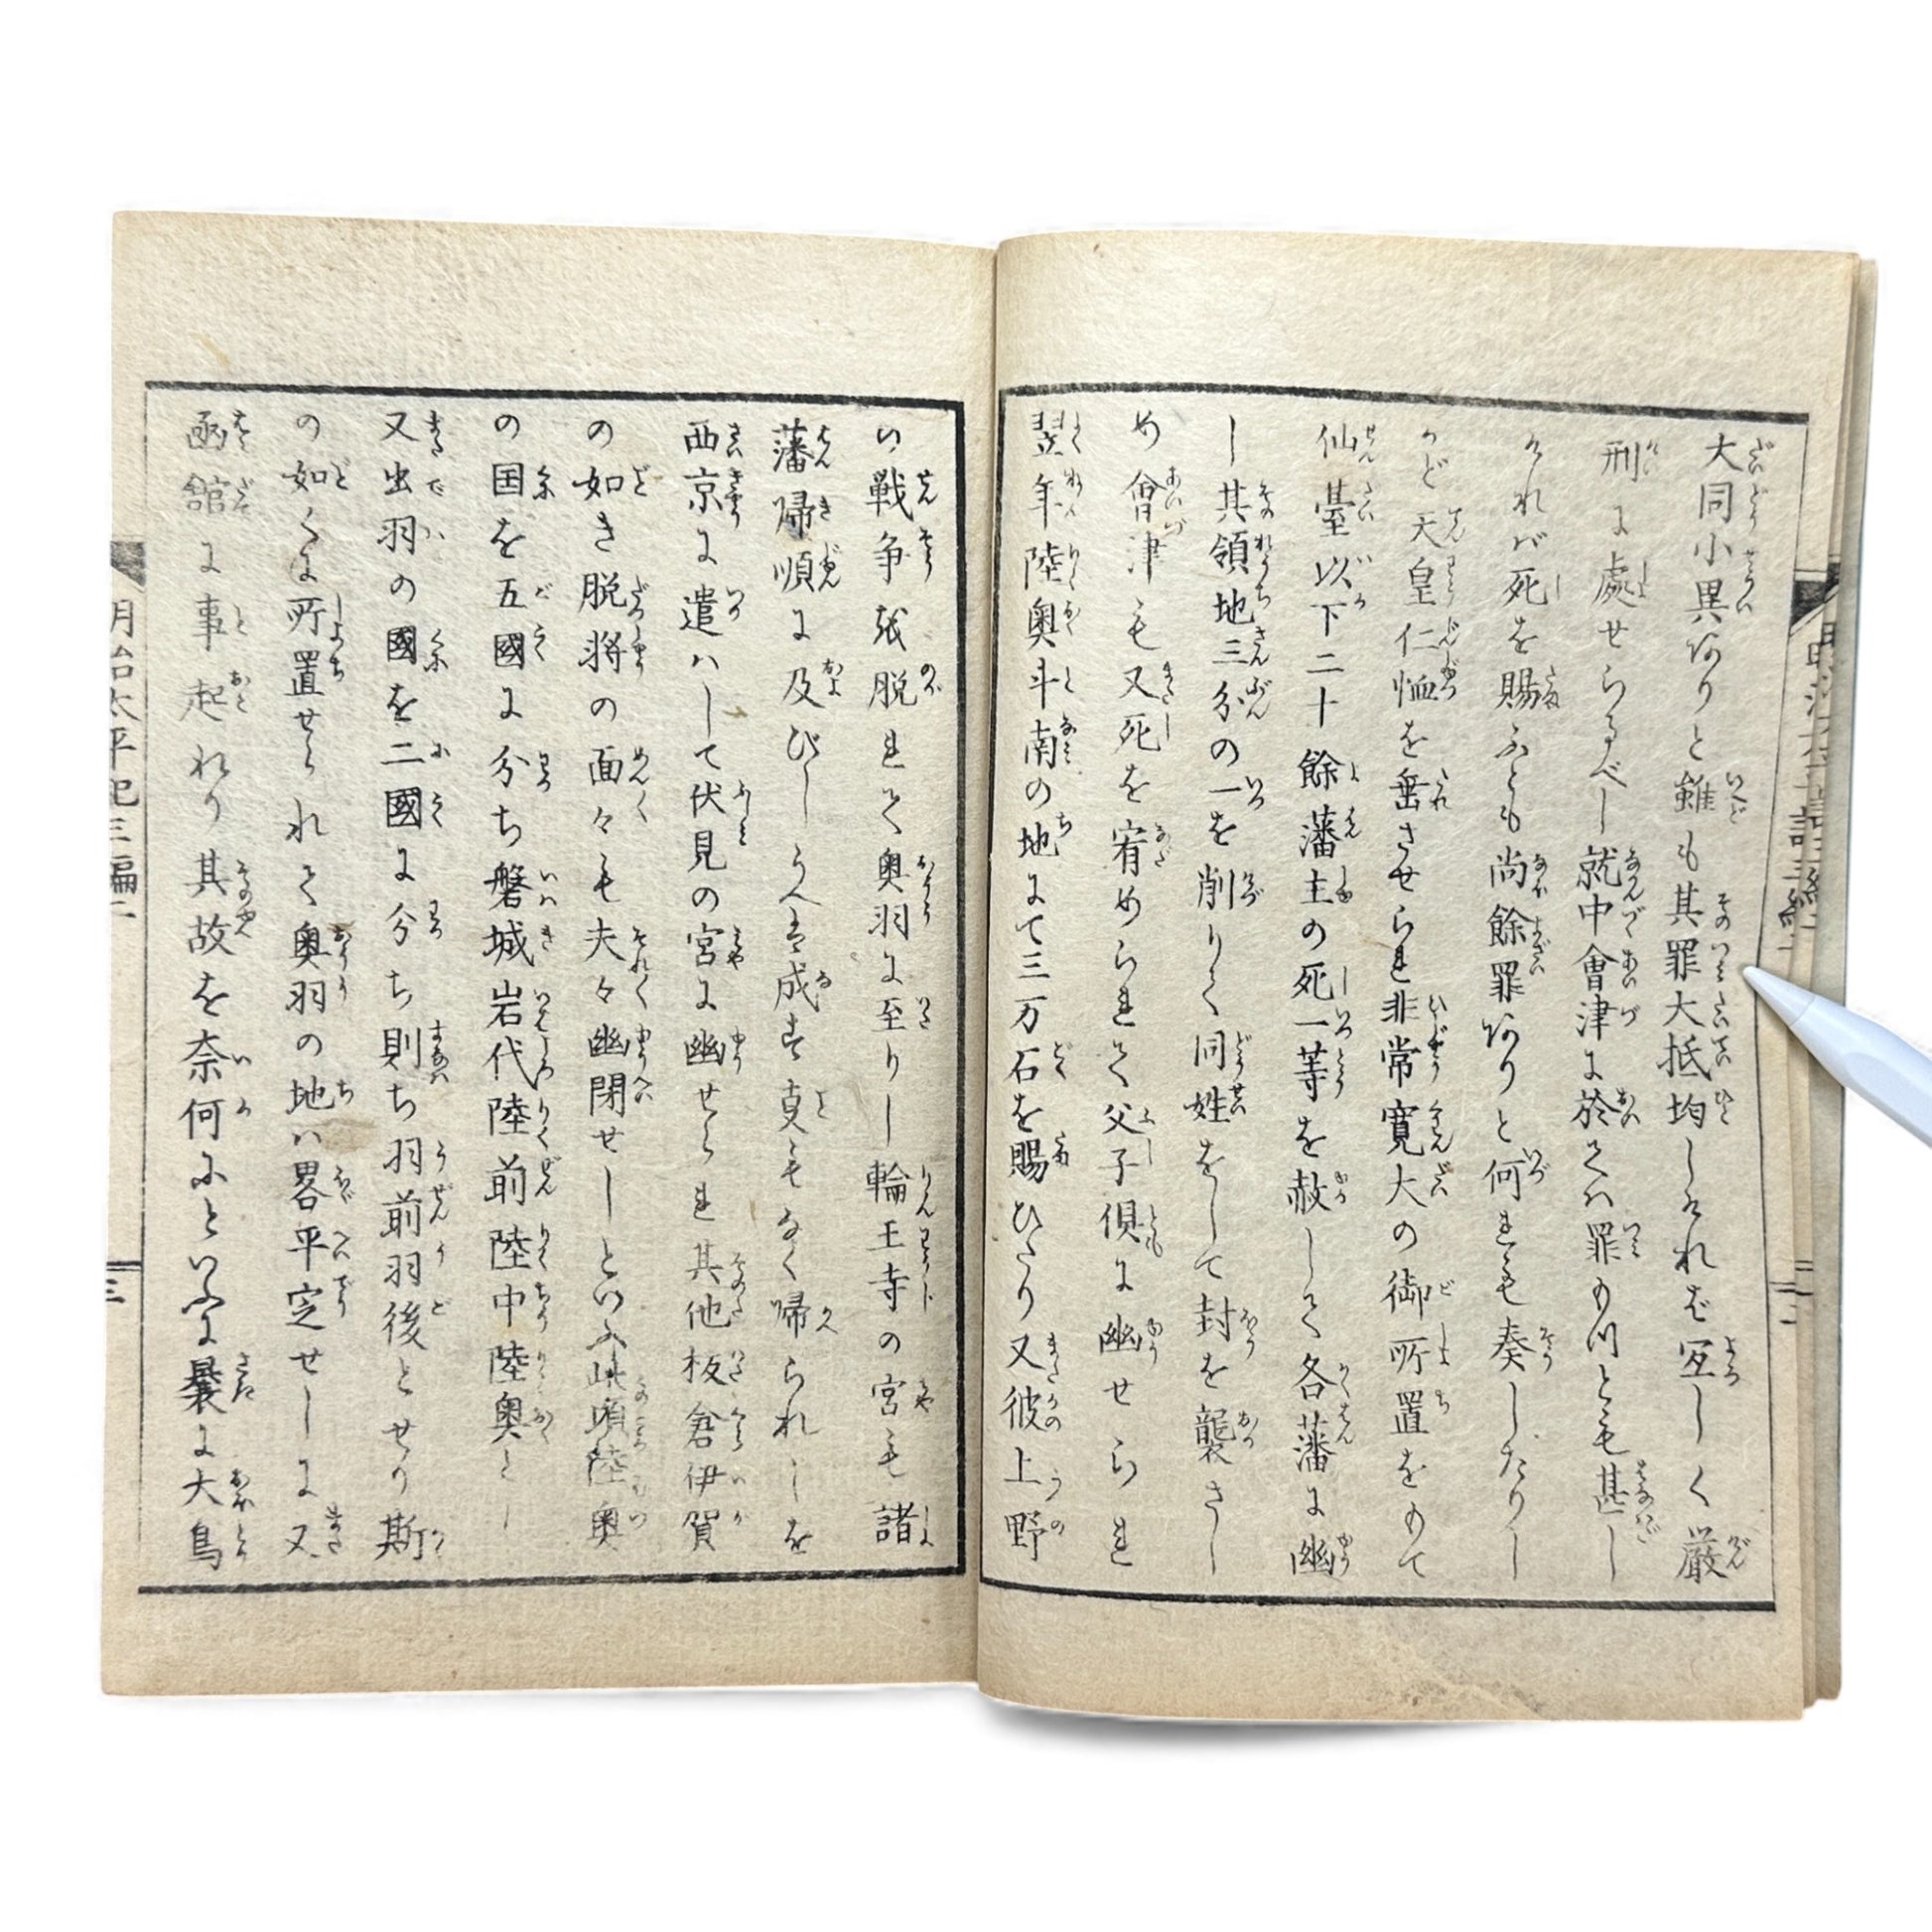 大同小異ありと雖も其罪大抵均しければ宜しく厳
刑に處せらるべし就中會津に於ては罪もつとも甚し
ければ死を賜ふとも尚餘罪ありと何れも奏したりし
かど天皇仁恤を垂させられ非常寛大の御所置をもて
仙臺以下二十餘藩主の死一等を赦して各藩に幽
し其領地三分の一を削りて同姓をして封を襲さし
め會津も又死を宥められて父子倶に幽せられ
翌年陸奥斗南の地にて三万石を賜ひたり又彼上野
の戦争を脱れて奥羽に至りし輪王寺の宮も諸
藩帰順に及びしうへは成す事もなく帰られしを
西京に遣はして伏見の宮に幽せられ其他板倉伊賀
の如き脱将の面々も夫々幽閉せしといふ此頃陸奥
の国を五國に分ち磐城岩代陸前陸中陸奥とし
又出羽の國を二國に分ち則ち羽前羽後とせり斯
の如くに所置せられて奥羽の地は畧平定せしに又
函舘に事起れり其故を奈何にといふに曩に大鳥
明治太平記三編二
三